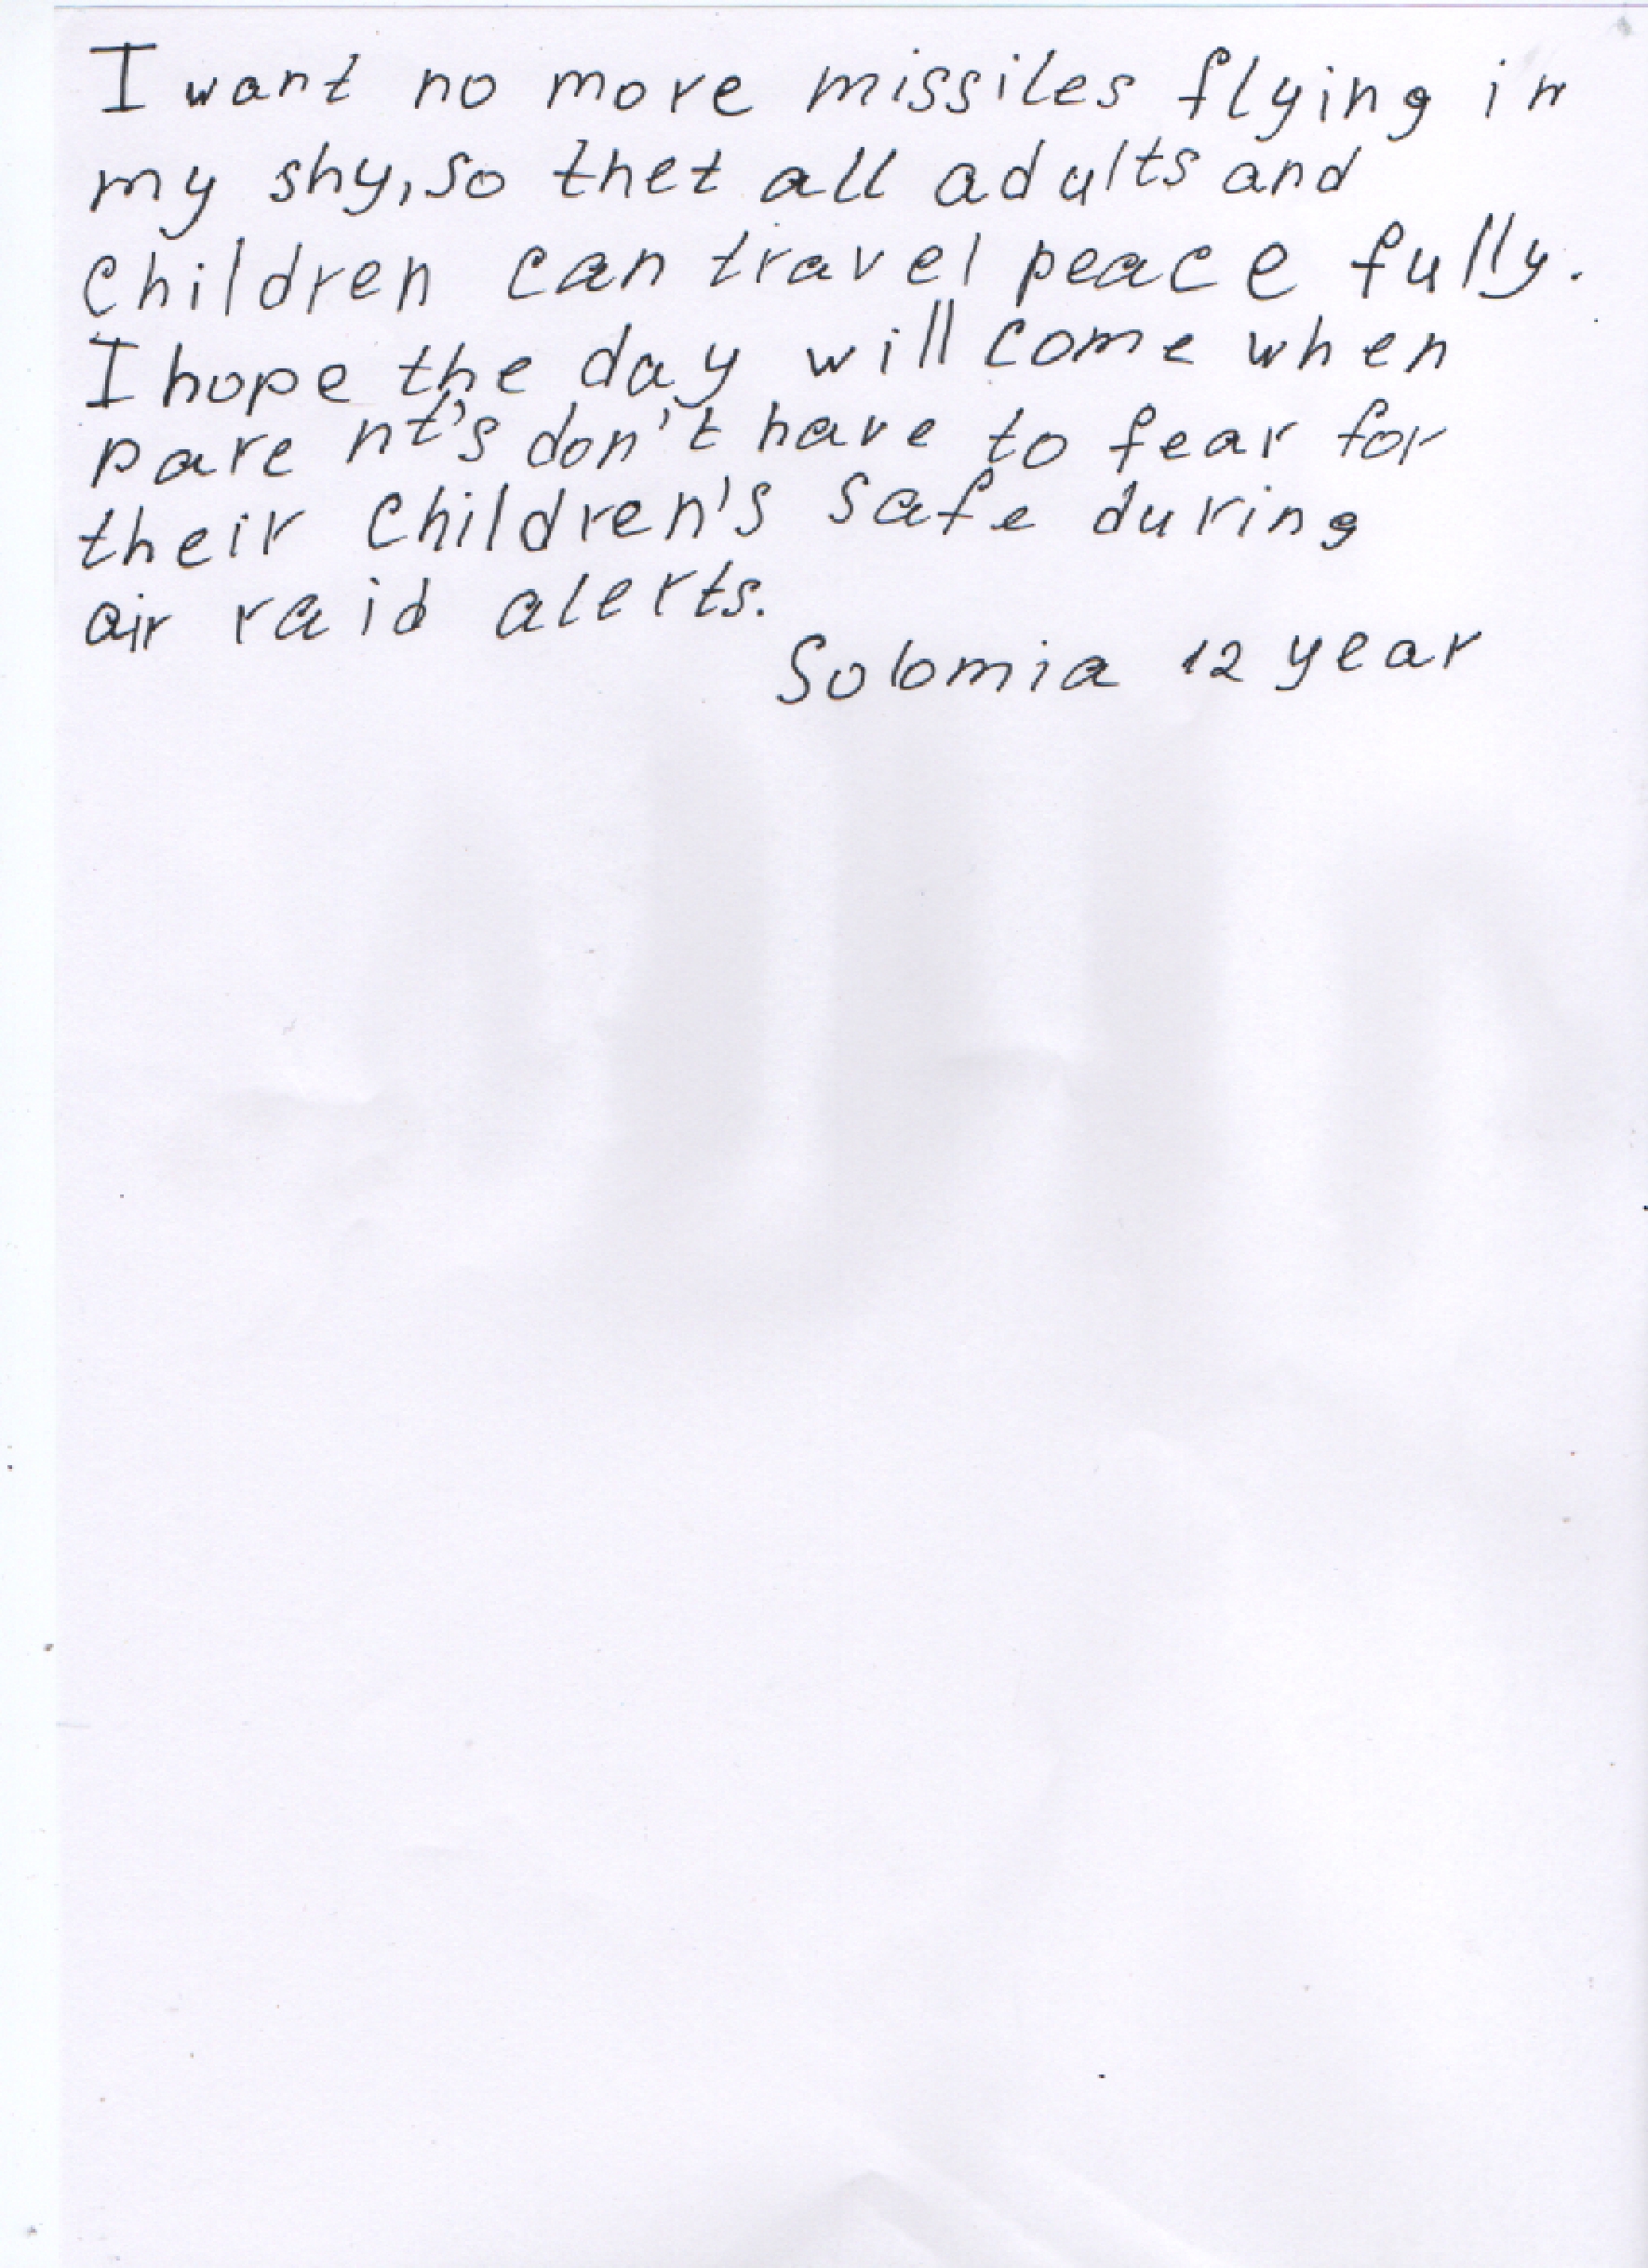 I want no more missiles flying in
my shy, so thet all adults and
children can travel peace fully.
I hope the day will come when
pare nt's don't have to fear for
their children's safe during
air raid alerts.
Solomia 12 year